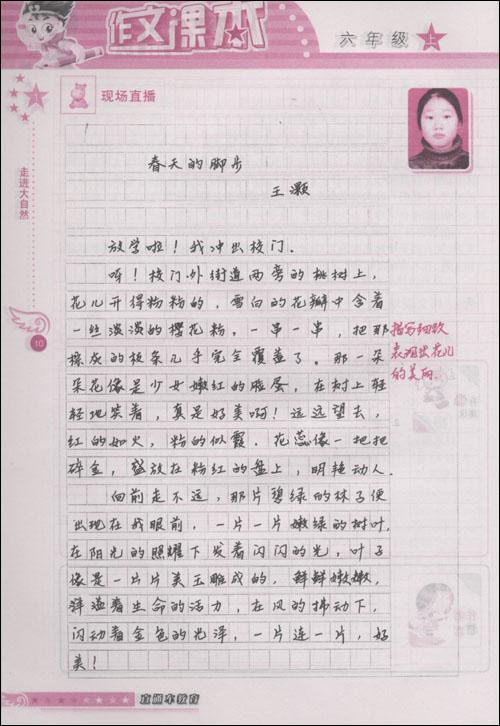 作文课本
六年级 上
1
现场直播
走进大自然
10
春天的脚步
王灏
放学啦！我冲出校门。
呀！校门外街道两旁的桃树上，
花儿开得粉粉的，雪白的花瓣中含着
一丝淡淡的樱花粉，一串一串，把那
橡皮的枝条几乎完全覆盖了。那一朵
朵花像是少女嫩红的脸蛋，在树上轻
轻地笑着，真是好美啊！远远望去，
红的如火，粉的似霞。花蕊像一把把
碎金，盛放在粉红的盘上，明艳动人。
向前走不远，那片碧绿的林子便
出现在我眼前，一片一片嫩绿的树叶，
在阳光的照耀下发着闪闪的光，叶子
像是一片片美玉雕成的，鲜鲜嫩嫩，
洋溢着生命的活力，在风的拂动下，
闪动着金色的光泽，一片连一片，好
美！
描写细致
表现出花儿
的美丽。
直通车教育